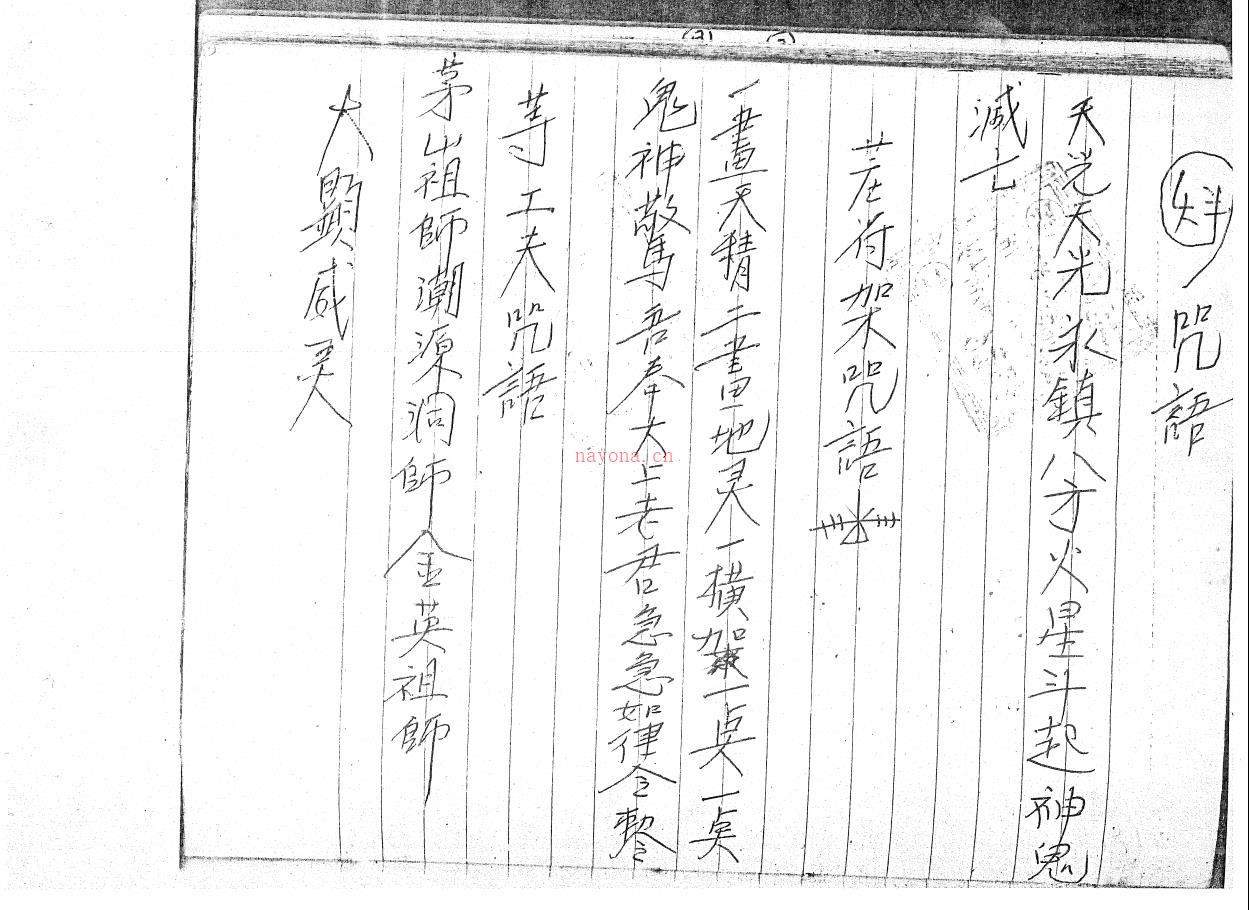 咒語
天光天光永鎮八方火星斗起神鬼
滅亡
差符架咒語
一畫天精二畫地灵一橫架一点一点
鬼神敬馬吾奉大上老君急急如律令敕令
等工夫咒語
茅山祖師潮源洞師金英祖師
大顯威灵
nayona.cn